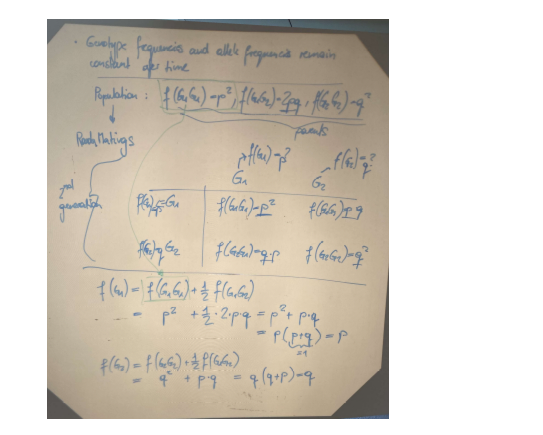 · Genotype frequencies and allele frequencies remain
constant over time
Population : f(G₁G₁)=p², f(G₁G₂)=2pq, f(G₂G₂)=q²
parents
Random Matings
f(G₁)=p f(G₂)=q
G₁ G₂
2nd
generation
f(G₁)=p G₁ f(G₁G₁)=p² f(G₁G₂)=p q
f(G₂)=q G₂ f(G₂G₁)=q·p f(G₂G₂)=q²
f(G₁) = f(G₁G₁) + ½ f(G₁G₂)
= p² + ½·2·p·q = p² + p·q
= p(p+q) = p
=1
f(G₂) = f(G₂G₂) + ½ f(G₁G₂)
= q² + p·q = q(q+p)=q